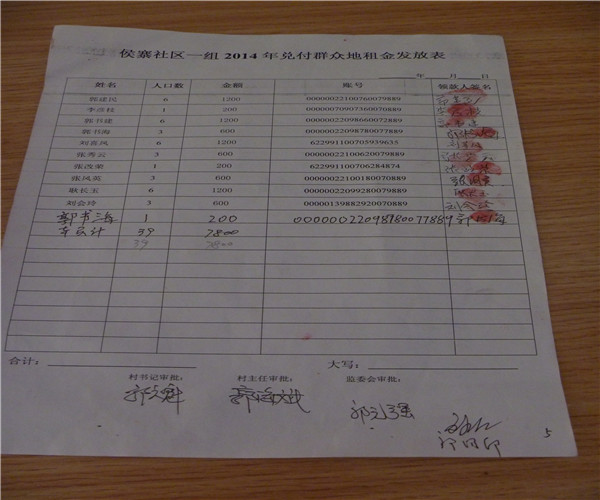 侯寨社区一组 2014 年兑付群众地租金发放表
年 月 日
姓名 人口数 金额 账号 领款人签名
郭建民 6 1200 00000022100760079889
李彦枝 1 200 00000070907360070889
郭书建 6 1200 00000022098660072889
郭书海 3 600 00000022098780077889
刘喜凤 6 1200 622991100705939635
张秀云 3 600 00000022100620079889
张改荣 1 200 622991100706284874
张凤英 3 600 00000022100180070889
耿长玉 6 1200 00000022099280079889
刘会玲 3 600 00000139882920070889 刘会玲
郭书海 1 200 00000022098780077889 郭书海
本页计 39 7800
39 7800
合计: 大写:
村书记审批: 村主任审批: 监委会审批:
5